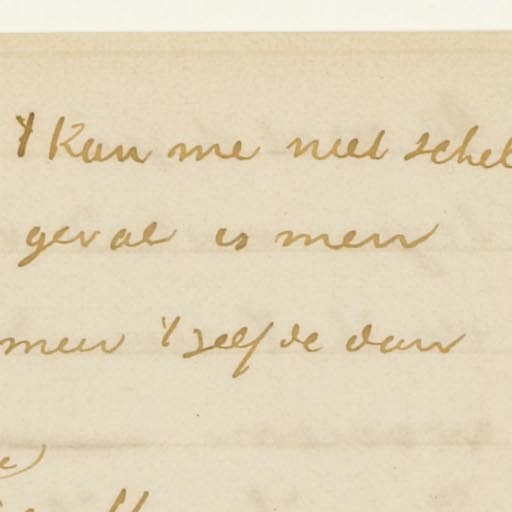 't kan me niet schel
geval is men
men 't zelfde dan